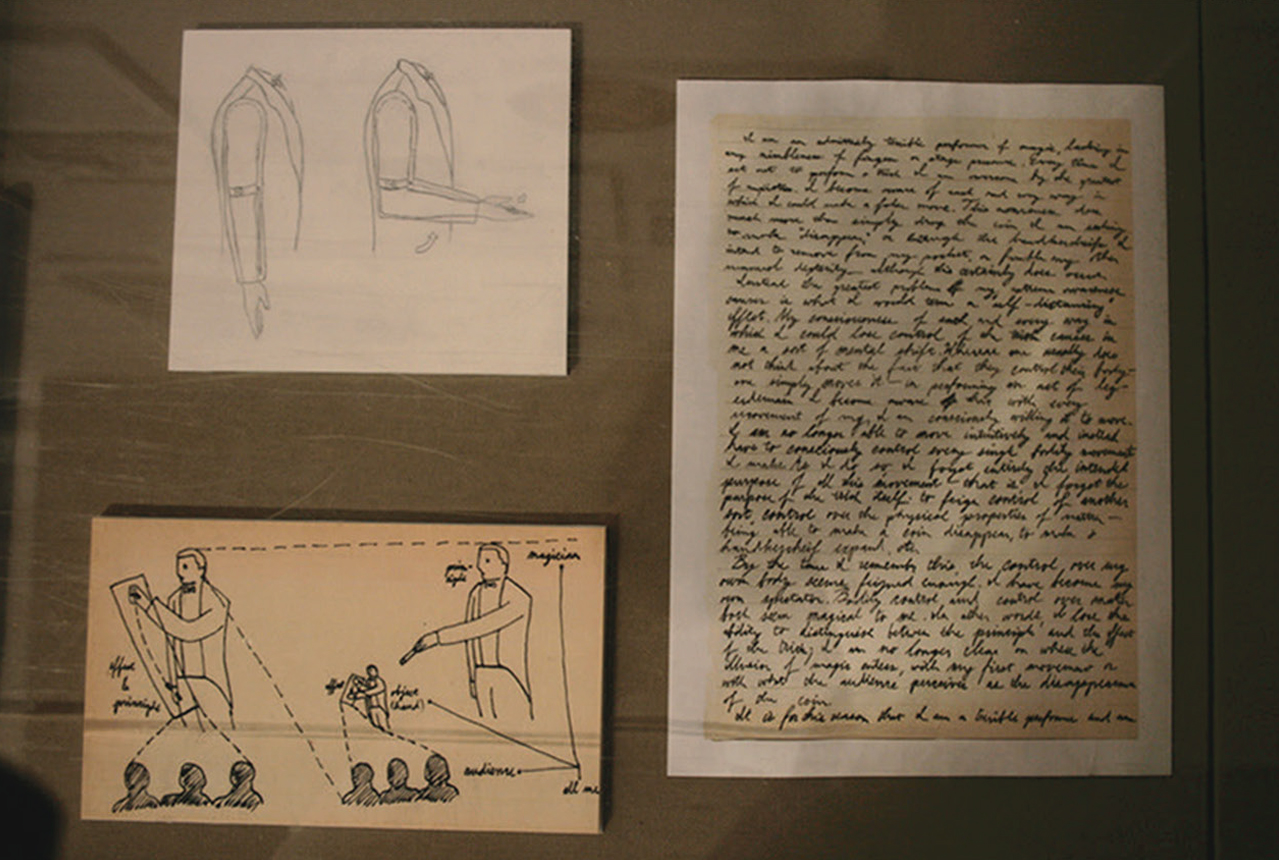 I am an admittedly terrible performer of magic, lacking in
my nimbleness of fingers or stage presence. Every time I
set out to perform a trick I am overcome by the greatest
of I become aware of each and every way in
which I could make a false move. This awareness does
much more than simply drop the coin I am asking
to make "disappear" or the handkerchiefs I
intend to remove from my pocket, or fumble my other
manual dexterity although this certainly does occur.
Instead the greatest problem of my extreme awareness
is what I would term a "self-distancing"
effect. My consciousness of each and every way in
which I could lose control of the causes in
me a sort of mental shift. Whereas one usually does
not think about the fact that they control their body-
one simply moves it - in performing an act of leg-
erdemain I become aware of this with every
movement of my, I am consciously willing it to move.
I am no longer able to move intuitively and instead
have to consciously control every single bodily movement
I make. As I do so I forget entirely the intended
purpose of all this movement - that is I forget the
purpose of the trick itself: to feign control of another
sort control over the physical properties of matter -
being able to make a coin disappear, to make a
handkerchief expand, etc.
By the time I remember this, the control over my
own body seems feigned enough. I have become my
own spectator. Bodily control and control over matter
both seem magical to me. In other words I lose the
ability to distinguish between the principle and the effect
of the trick; I am no longer clear on where the
illusion of magic enters, with my first movement or
with what the audience perceives as the disappearance
of the coin.
It is for this reason that I am a terrible performer and am
magician
effect
&
principle
effect
object
(hand)
audience
all me